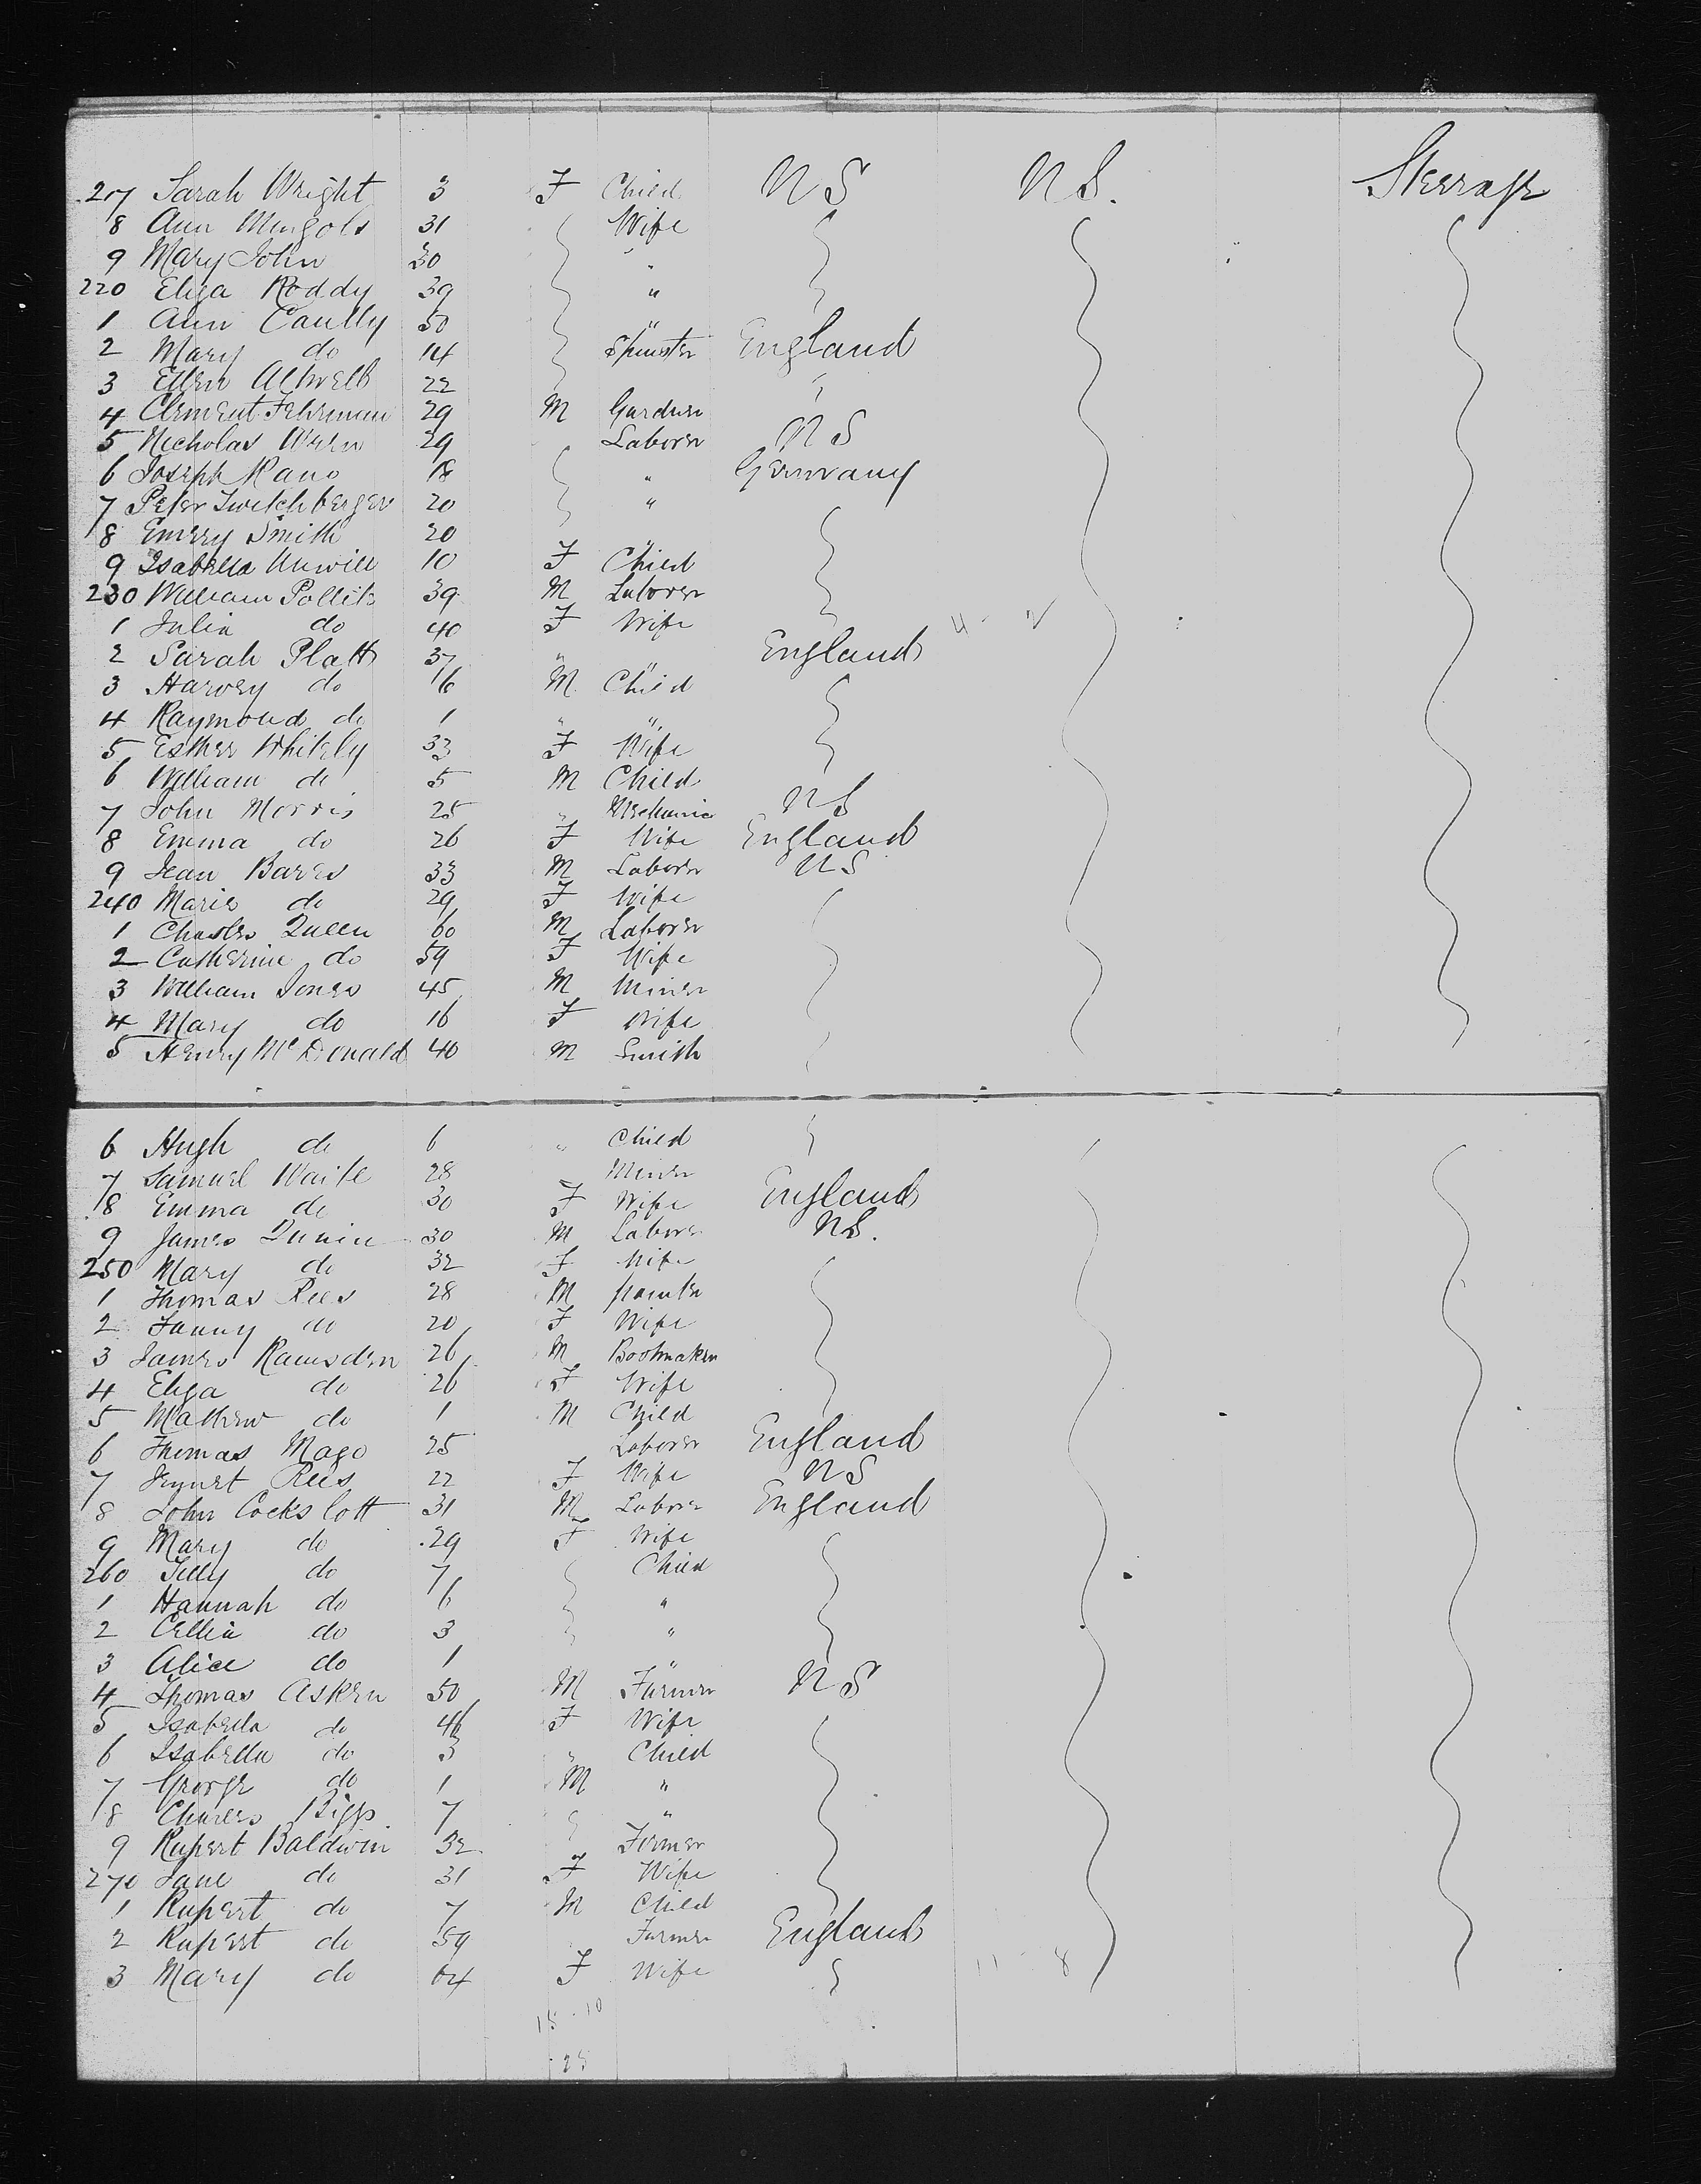 217 Sarah Wright 3 F Child N S N S. Steerage
8 Ann Mingols 31 Wife
9 Mary John 30 "
220 Eliza Roddy 39 "
1 Ann Caully 50 "
2 Mary do 14 Spinster England
3 Ellen Attwell 22
4 Clement Fehrman 29 M Gardner
5 Nicholas 29 Laborer N S
6 Joseph Kano 18 " Germany
7 Peter Twitchberger 20 "
8 Emery Smith 20 "
9 Isabella Unwill 10 F Child
230 William Pollitt 39 M Laborer
1 Julia do 40 F Wife 4 2
2 Sarah Platt 37 " " England
3 Harvey do 16 M Child
4 Raymond do 1 " "
5 Esther Whitely 33 F Wife
6 William do 5 M Child
7 John Morris 25 " Mechanic N S
8 Emma do 26 F Wife England
9 Jean Barrs 33 M Laborer N S
240 Marie do 29 F Wife
1 Charles Queen 60 M Laborer
2 Catherine do 59 F Wife
3 William Jones 45 M Miner
4 Mary do 16 F Wife
5 Henry McDonald 40 M Smith
6 Hugh do 6 " Child
7 Samuel Waite 28 " Miner
8 Emma do 30 F Wife England
9 James Dunin 30 M Laborer N S.
250 Mary do 32 F Wife
1 Thomas Rees 28 M painter
2 Fanny do 20 F Wife
3 James Ramsden 26 M Bootmaker
4 Eliza do 26 F Wife
5 Mathew do 1 M Child
6 Thomas Mago 25 Laborer England
7 Rees 22 F Wife N S
8 John Cockslott 31 M Laborer England
9 Mary do 29 F Wife
260 Tilly do 7 Child
1 Hannah do 6 "
2 Cellia do 3 "
3 Alice do 1 "
4 Thomas Askren 50 M Farmer N S
5 Isabella do 46 F Wife
6 Isabella do 3 " Child
7 George do 1 M "
8 Charles Bigp 7 "
9 Rupert Baldwin 32 Farmer
270 Jane do 31 F Wife
1 Rupert do 7 M Child
2 Rupert do 59 Farmer England
3 Mary do 64 F Wife 11 8
15 10
25